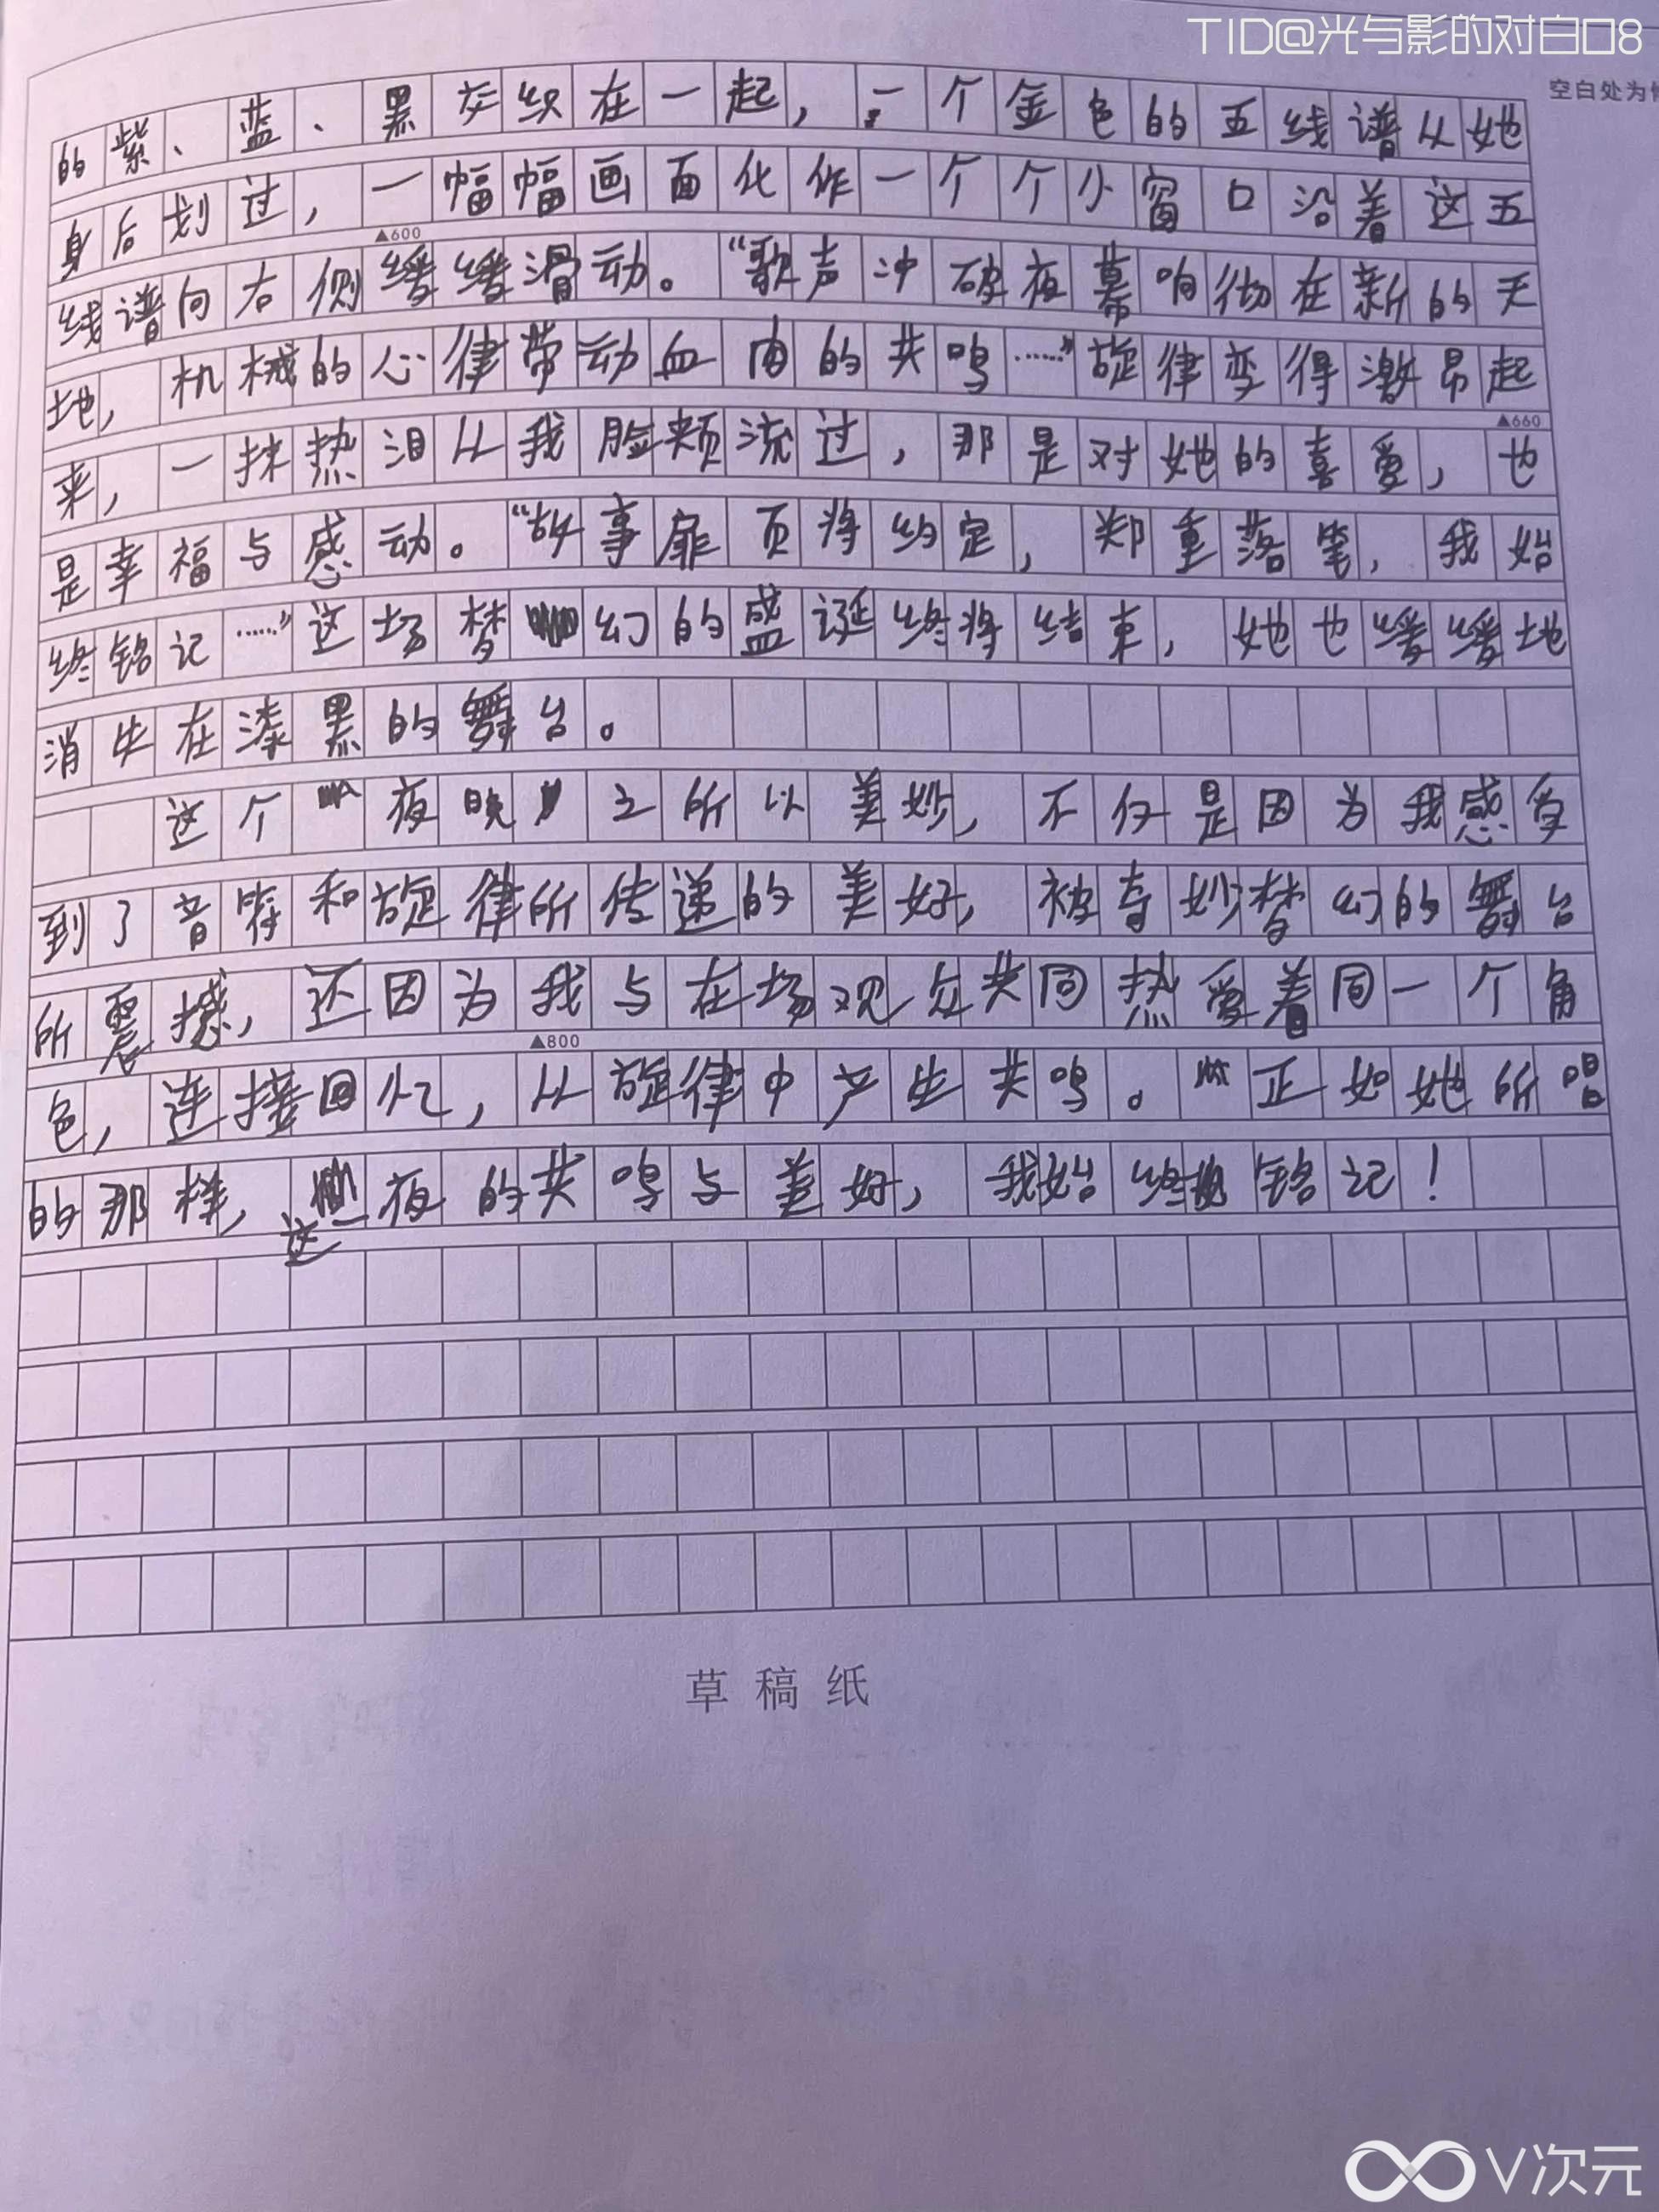 TID@光与影的对白口8
空白处为
的紫、蓝、黑交织在一起，一个金色的五线谱从她
身后划过，一幅幅画面化作一个个小窗口沿着这五
▲600
线谱向右侧缓缓滑动。“歌声冲破夜幕响彻在新的天
地，机械的心律带动血肉的共鸣……”旋律变得激昂起
▲660
来，一抹热泪从我脸颊流过，那是对她的喜爱，也
是幸福与感动。“故事扉页将约定，郑重落笔，我始
终铭记……”这场梦幻的盛诞终将结束，她也缓缓地
消失在漆黑的舞台。
这个夜晚之所以美妙，不仅是因为我感受
到了音符和旋律所传递的美好，被奇妙梦幻的舞台
所震撼，还因为我与在场观众共同热爱着同一个角
▲800
色，连接回忆，从旋律中产生共鸣。正如她所唱
的那样，这一夜的共鸣与美好，我始终铭记！
草稿纸
V次元